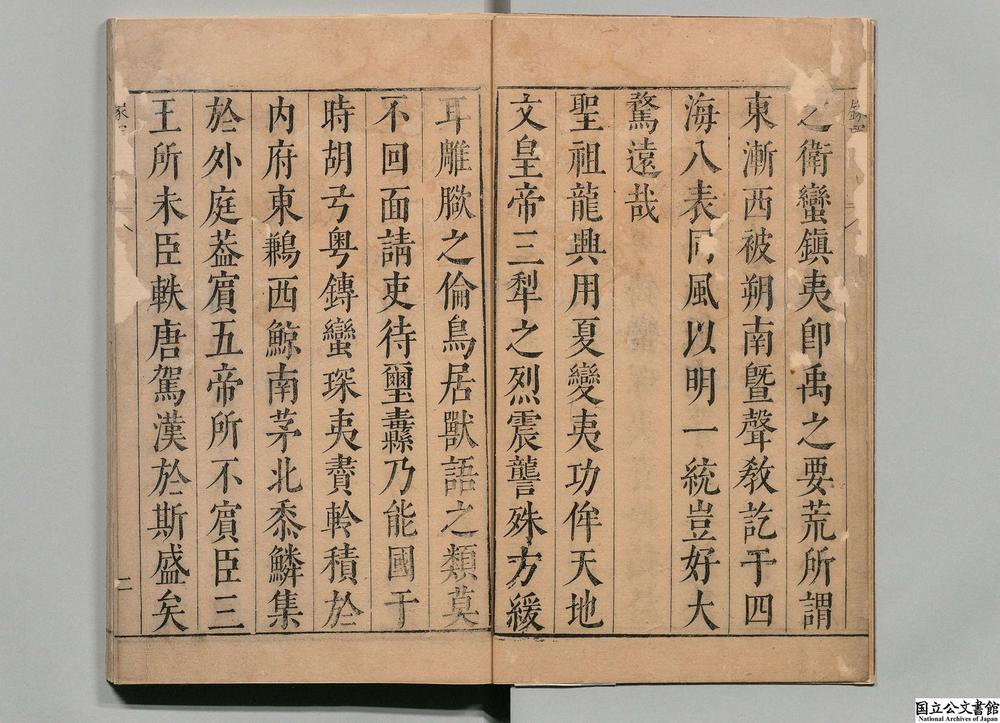 之衛蠻鎮夷卽禹之要荒所謂
東漸西被朔南曁聲敎訖于四
海八表同風以明一統豈好大
騖遠哉
聖祖龍興用夏變夷功侔天地
文皇帝三犁之烈震讋殊方緩
耳雕臏之倫鳥居獸語之類莫
不回面請吏待璽纛乃能國于
時胡弓粤鏄蠻琛夷賮軫積於
内府東鶼西鯨南茅北黍鱗集
於外庭葢賔五帝所不賔臣三
王所未臣軼唐駕漢於斯盛矣
二
国立公文書館
National Archives of Japan